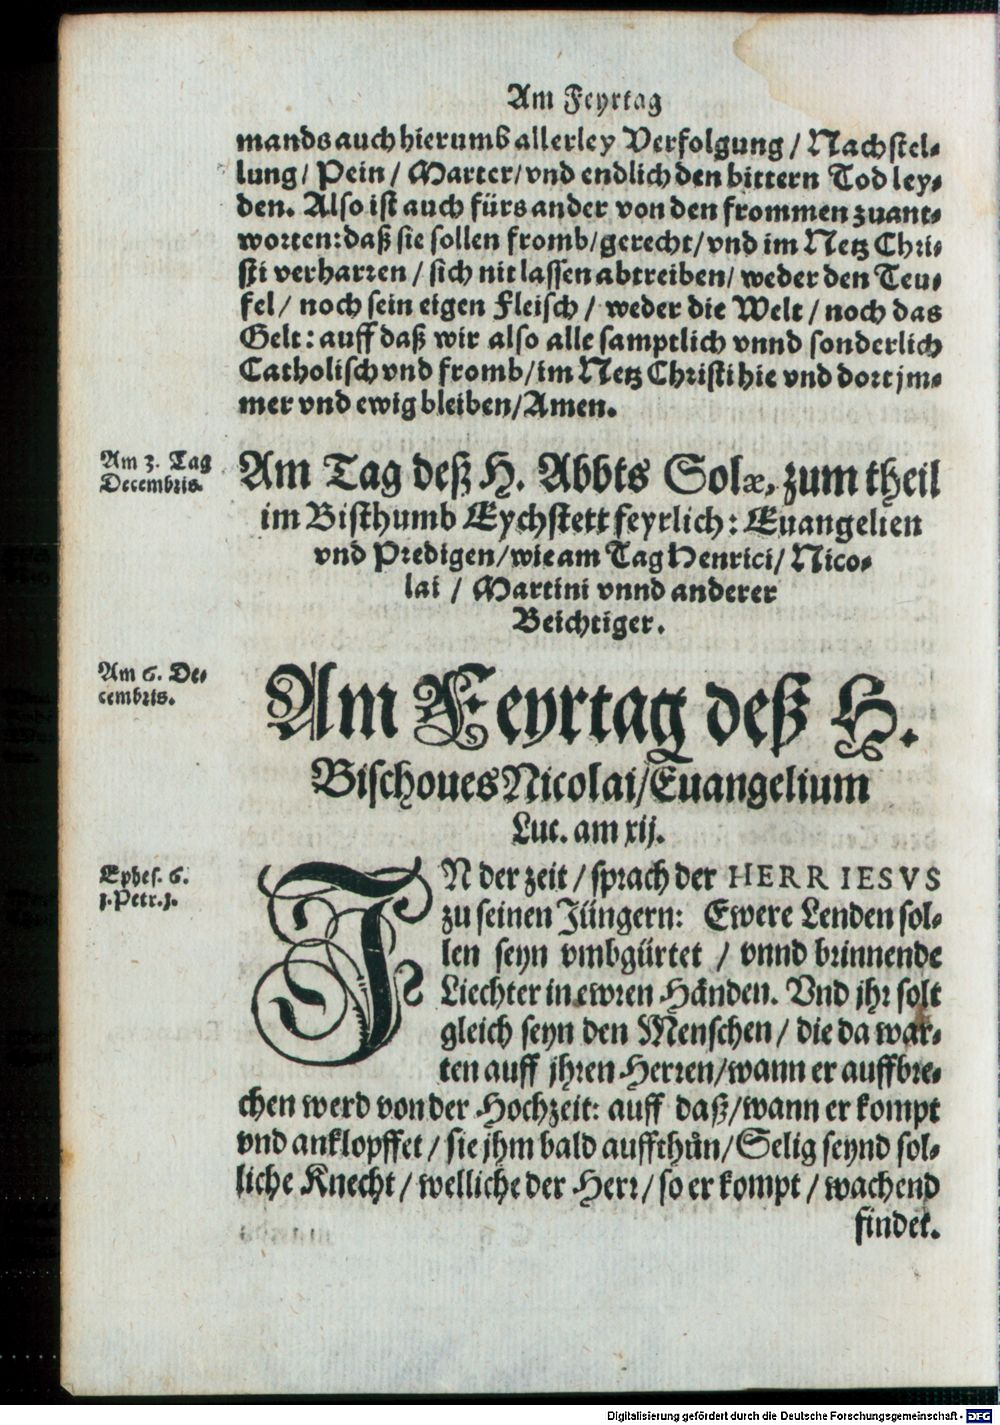 Am Feyrtag
mands auch hierumb allerley Verfolgung / Nachstel-
lung / Pein / Marter / vnd endlich den bittern Tod ley-
den. Also ist auch fürs ander von den frommen zuant-
worten: daß sie sollen fromb / gerecht / vnd im Netz Chri-
sti verharren / sich nit lassen abtreiben / weder den Teu-
fel / noch sein eigen Fleisch / weder die Welt / noch das
Gelt: auff daß wir also alle samptlich vnnd sonderlich
Catholisch vnd fromb / im Netz Christi hie vnd dort jm-
mer vnd ewig bleiben / Amen.
Am 3. Tag
Decembris.
Am Tag deß H. Abbts Solæ, zum theil
im Bisthumb Eychstett feyrlich: Euangelien
vnd Predigen / wie am Tag Henrici / Nico-
lai / Martini vnnd anderer
Beichtiger.
Am 6. De-
cembris.
Am Feyrtag deß H.
Bischoues Nicolai / Euangelium
Luc. am xij.
Ephes. 6.
1. Petr. 1.
IN der zeit / sprach der HERR IESVS
zu seinen Jüngern: Ewere Lenden sol-
len seyn vmbgürtet / vnnd brinnende
Liechter in ewren Händen. Vnd jhr solt
gleich seyn den Menschen / die da war-
ten auff jhren Herren / wann er auffbre-
chen werd von der Hochzeit: auff daß / wann er kompt
vnd anklopffet / sie jhm bald auffthůn / Selig seynd sol-
liche Knecht / welliche der Herr / so er kompt / wachend
findet.
Digitalisierung gefördert durch die Deutsche Forschungsgemeinschaft - DFG